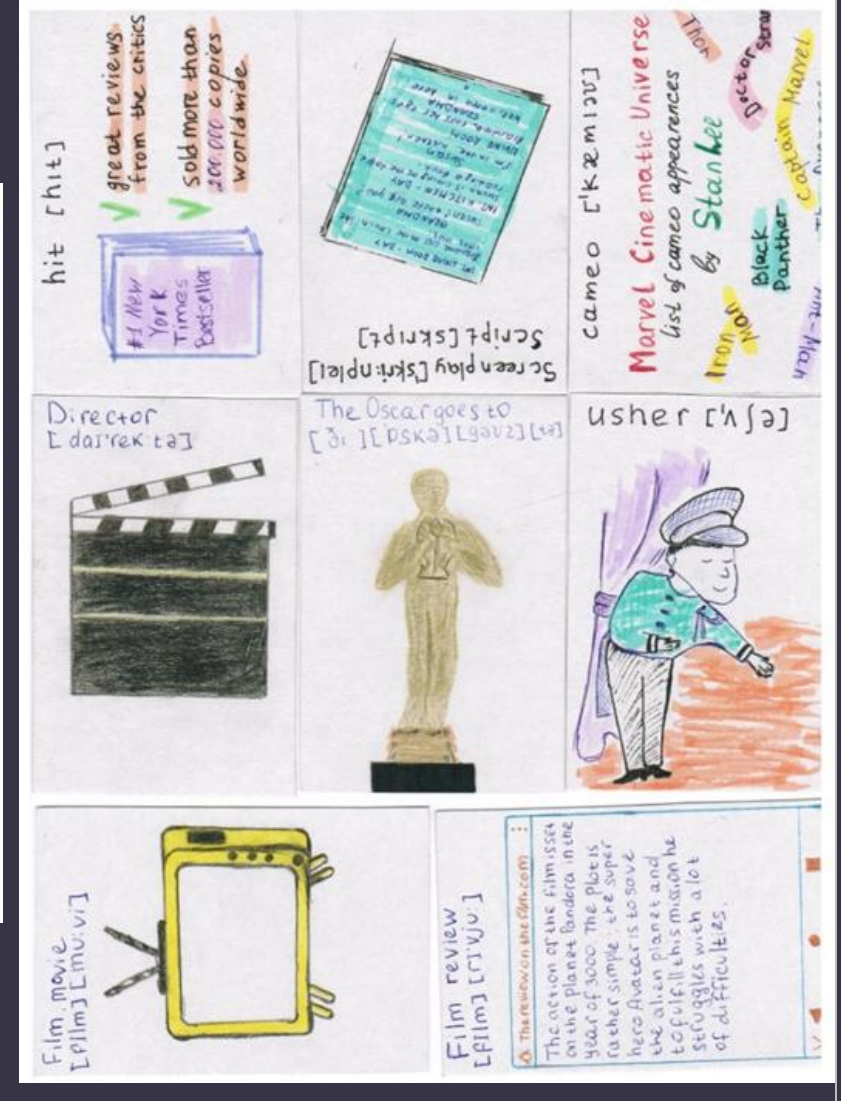 hit [hɪt]
#1 New
York
Times
Bestseller
great reviews
from the critics
sold more than
200.000 copies
worldwide
Screenplay ['skri:nplei]
Script [skript]
INT. LIVING ROOM - DAY
GRANDMA
INT. KITCHEN - DAY
cameo ['kæmɪəʊ]
Marvel Cinematic Universe
list of cameo appearences
by Stan Lee
Thor
Doctor
Iron
Man
Black
Panther
Captain Marvel
Ant-Man
Director
[daɪ'rek:tə]
The Oscar goes to
[ðɪ][ɒskə][gəʊz][tə]
usher ['ʌʃə]
Film, movie
[fɪlm] [mu:vi]
Film review
[fɪlm] [rɪvju:]
The review on the film.com
The action of the film is set
on the planet Pandora in the
year of 3000. The plot is
rather simple: the super
hero Avatar is to save
the alien planet and
to fulfill this mission he
struggles with a lot
of difficulties.